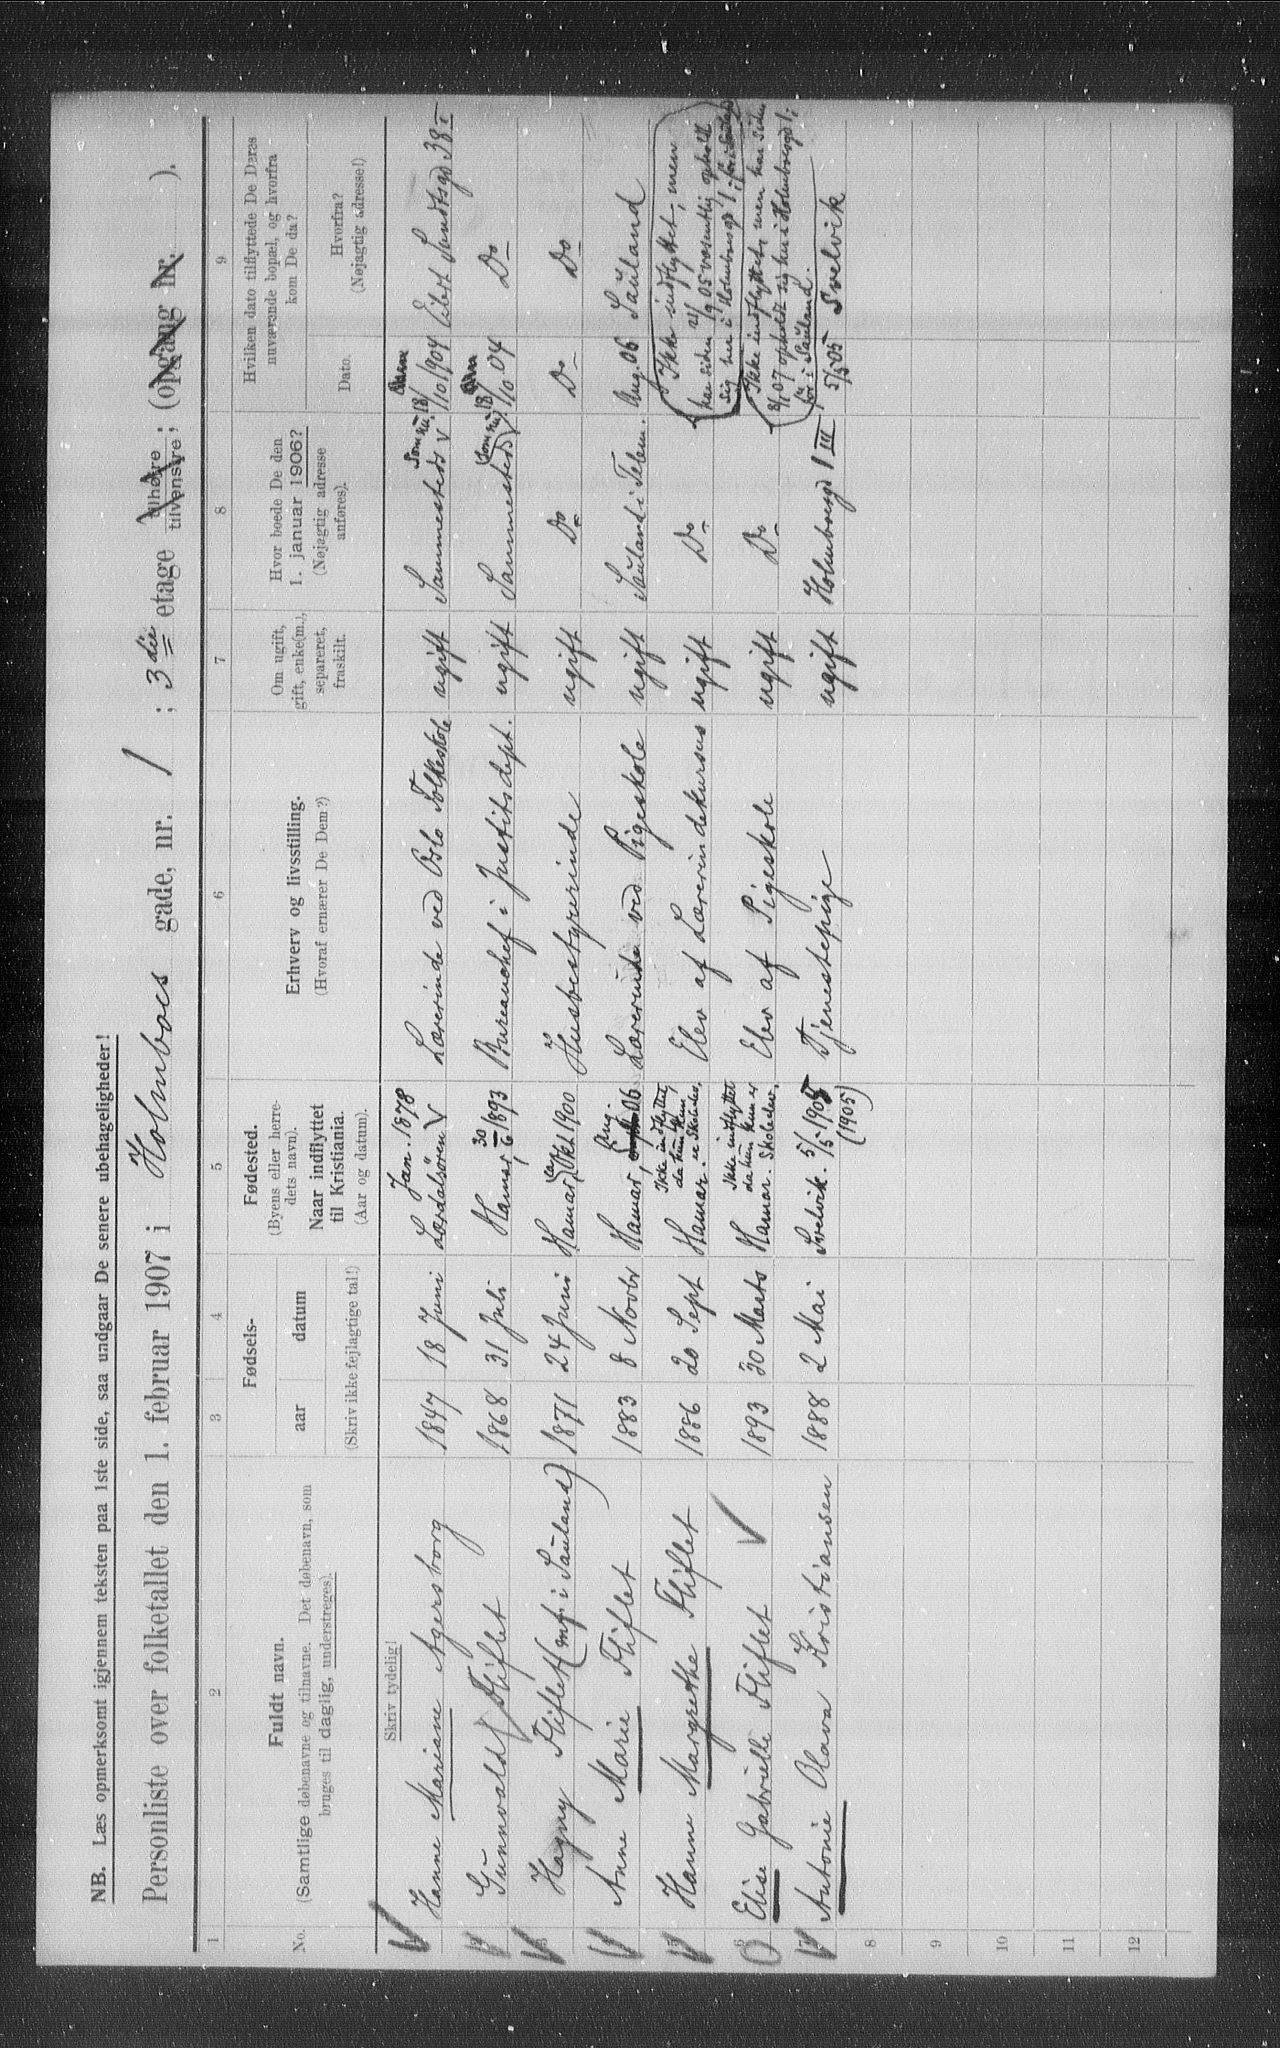 NB. Læs opmerksomt igjennem teksten paa 1ste side, saa undgaar De senere ubehageligheder!
Personliste over folketallet den 1. februar 1907 i Holmboes gade, nr. 1 ; 3die etage tilhøire tilvenstre ; (opgang nr. ).
1 2 3 4 5 6 7 8 9
No.
Fuldt navn.
(Samtlige døbenavne og tilnavne. Det døbenavn, som
bruges til daglig, understreges).
Fødsels-
aar datum
(Skriv ikke fejlagtige tal!)
Fødested.
(Byens eller herre-
dets navn).
Naar indflyttet
til Kristiania.
(Aar og datum).
Erhverv og livsstilling.
(Hvoraf ernærer De Dem?)
Om ugift,
gift, enke(m.),
separeret,
fraskilt.
Hvor boede De den
1. januar 1906?
(Nøjagtig adresse
anføres).
Hvilken dato tilflyttede De Deres
nuværende bopæl, og hvorfra
kom De da?
Dato.
Hvorfra?
(Nøjagtig adresse!)
Skriv tydelig!
1 Hanne Mariane Agersborg 1847 18 Juni Lærdalsøren Jan. 1878 Lærerinde ved Oslo Folkeskole ugift Sammesteds som nu 18/10 1904 Eilert Sundtsgd 38 I
2 Gunnvald Fliflet 1868 31 Juli Hamar, 30/6 1893 Bureauchef i Justitsdept. ugift Sammesteds (som nu) 18/10 04 Do
3 Hagny Fliflet (mf. i Sauland) 1871 24 Juni Hamar, ca Okt 1900 Husbestyrerinde ugift Do Do Do
4 Anne Marie Fliflet 1883 8 Novbr Hamar, Aug. 06 Lærerinde ved Pigeskole ugift Sauland i Telem. Aug. 06 Sauland
5 Hanne Margrethe Fliflet 1886 20 Sept Hamar. Ikke indflyttet da hun kun er Skoleelev. Elev af Lærerindekursus ugift Do Ikke indflyttet, men
har siden 21/1 1905 væsentlig opholdt
sig her i Holmboesgd 1; før i Sauland
6 Elise Gabrielle Fliflet 1893 30 Marts Hamar. Ikke indflyttet da hun kun er Skoleelev. Elev af Pigeskole ugift Do Ikke indflyttet, men har siden
8/1 07 opholdt sig her i Holmboesgd 1;
før i Sauland.
7 Antonie Olava Kristiansen 1888 2 Mai Svelvik. 5/5 1905 (1905) Tjenestepige ugift Holmboesgd 1 III 5/5 05 Svelvik
8
9
10
11
12